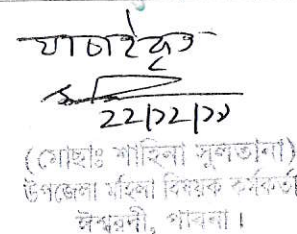 যাচাইকৃত
(মোছাঃ শাহিনা সুলতানা)
উপজেলা মহিলা বিষয়ক কর্মকর্তা
ঈশ্বরদী, পাবনা।